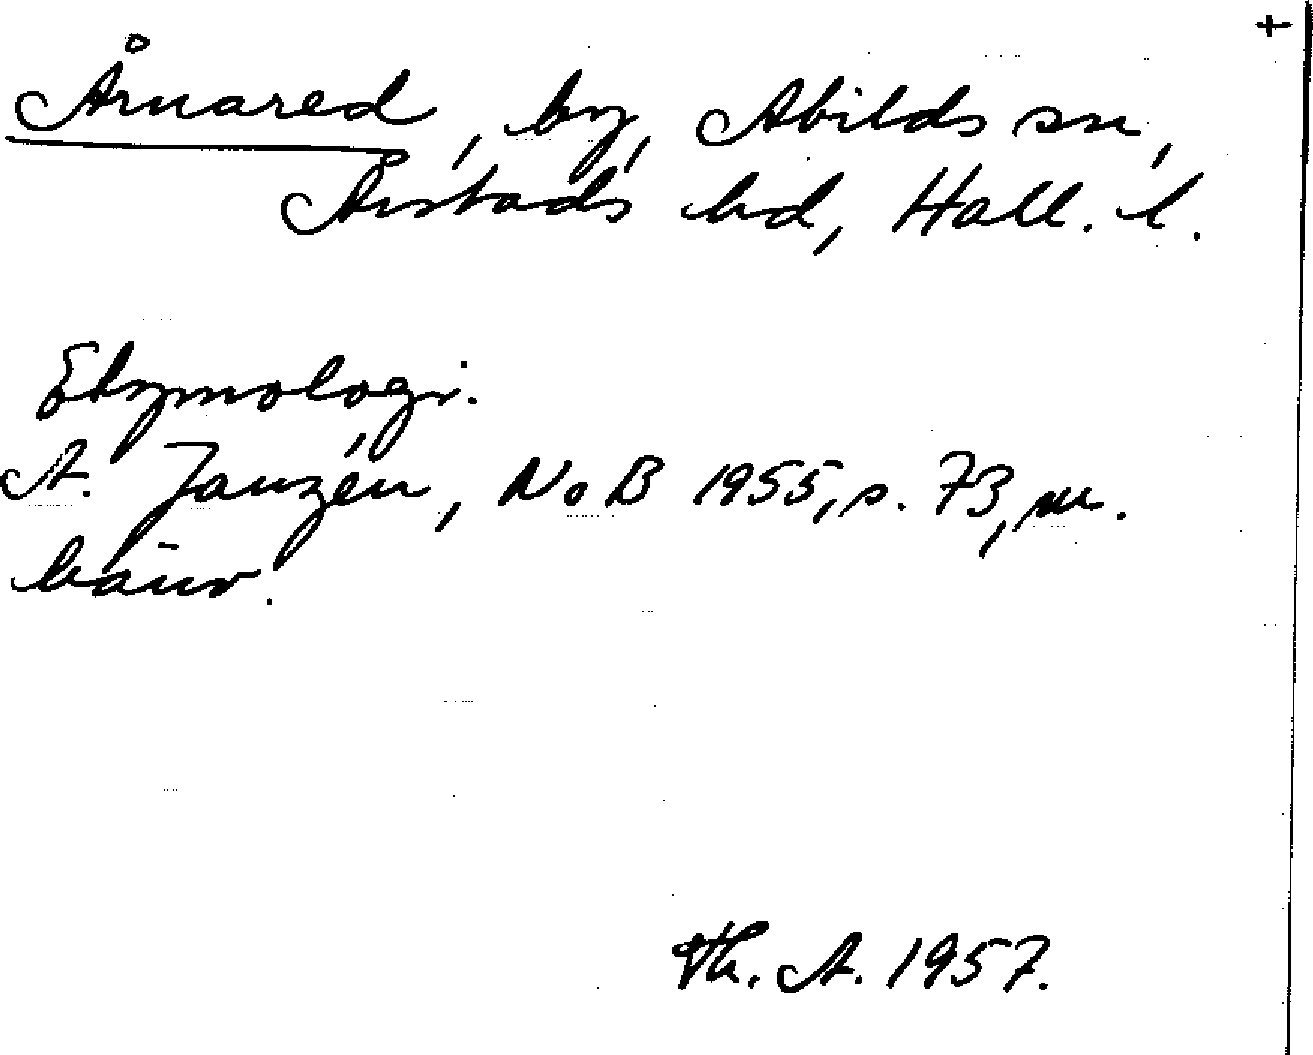 +
Årnared, by, Abilds sn,
Årstads hd, Hall. l.
Etymologi.
A. Janzén, NoB 1955, s. 73, m.
hänv.
Th. A. 1957.